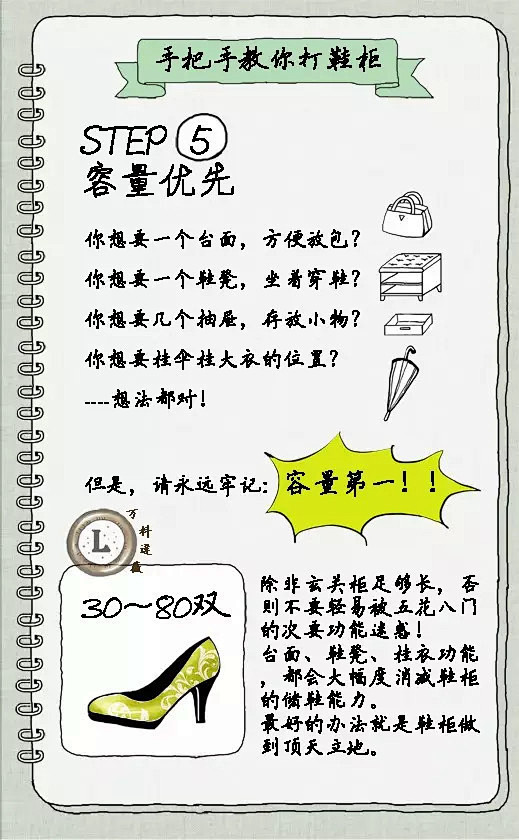 手把手教你打鞋柜
STEP 5
容量优先
你想要一个台面，方便放包？
你想要一个鞋凳，坐着穿鞋？
你想要几个抽屉，存放小物？
你想要挂伞挂大衣的位置？
----想法都对！
但是，请永远牢记：容量第一！！
L
万科逻盘
30～80双
除非玄关柜足够长，否
则不要轻易被五花八门
的次要功能迷惑！
台面、鞋凳、挂衣功能
，都会大幅度消减鞋柜
的储鞋能力。
最好的办法就是鞋柜做
到顶天立地。